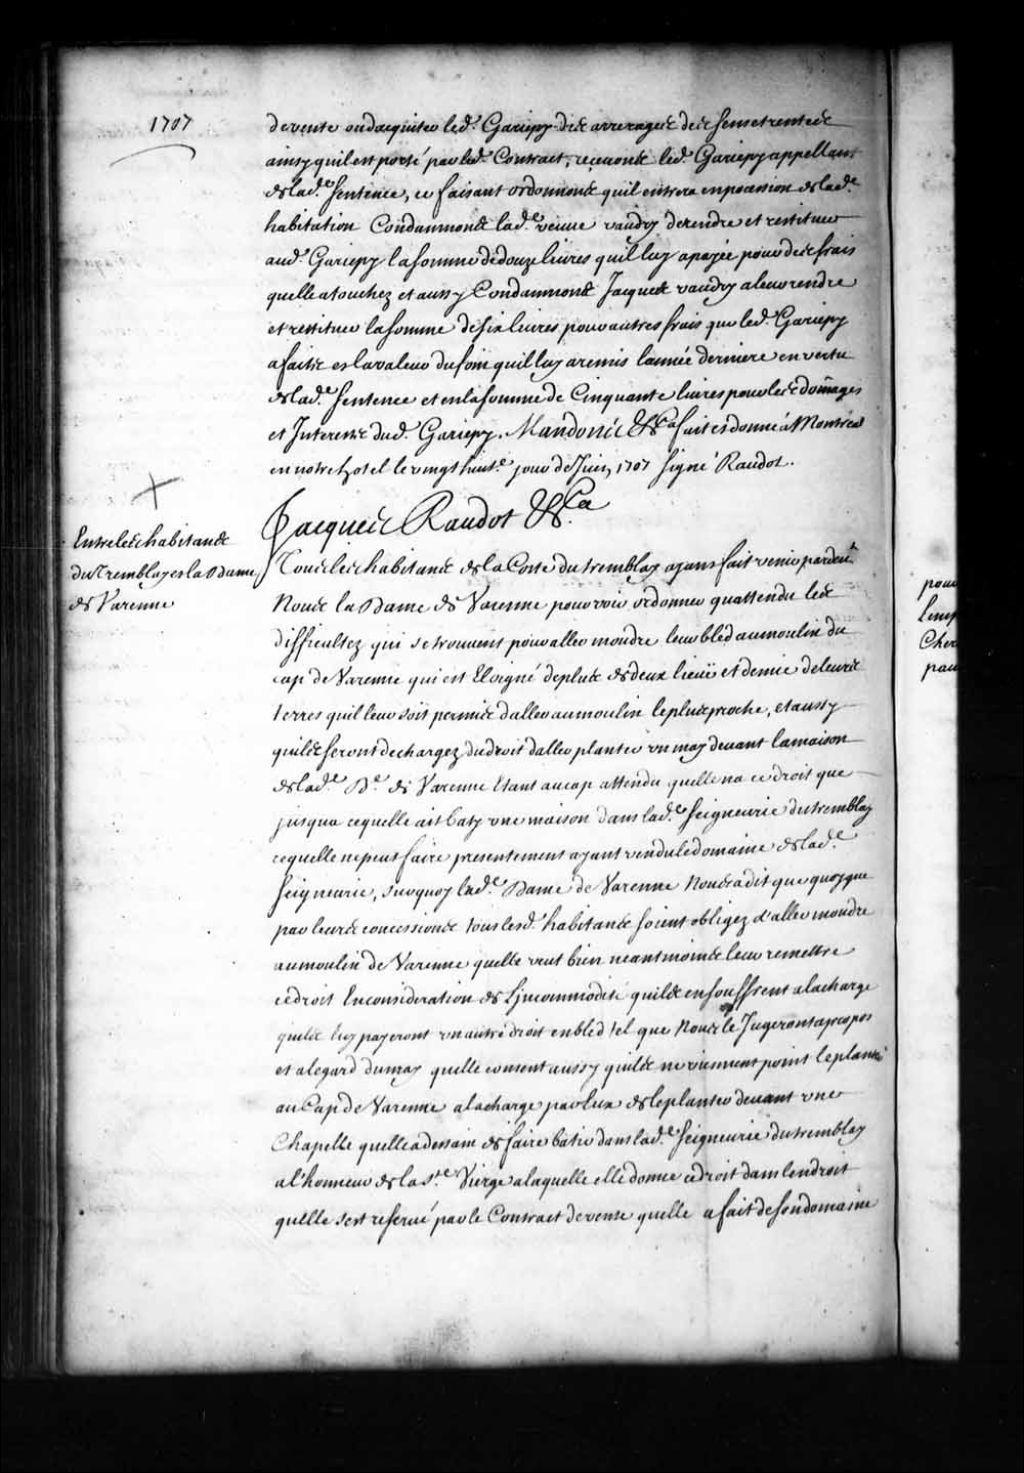 1707
de vente ou dacquiter led. Gariepy des arrerages de ses cens et rentes
ainsy quil est porté par led. Contract, receuons led. Gariepy appellant
de lad.e sentence, ce faisant ordonnons quil entrera en possession de lad.e
habitation Condamnons lad.e veuue vaudry de rendre et restituer
aud. Gariepy la somme de douze liures quil luy a payée pour des frais
quelle a touchez et aussy Condamnons Jacques vaudry a leur rendre
et restituer la somme de six liures pour autres frais que led. Gariepy
a faits et la valeur du foin quil luy a remis lannée derniere en vertu
de lad.e sentence et en la somme de Cinquante liures pour les dom̃ages
et Interests dud. Gariepy. Mandons &c.a fait et donné a Montréal
en nostre hostel le vingt huit.e jour de Juin 1707 signé Raudot.
Entre les habitants
du Tremblay et la Dame
de Varenne
Jacques Raudot &c.a
Tous les habitans de la Coste du tremblay ayans fait venir pardeu.t
Nous la Dame de Varenne pour voir ordonner quattendu les
difficultez qui se trouuent pour aller moudre leur bled au moulin du
cap de Varenne qui est Eloigné de plus de deux lieües et demie de leurs
terres quil leur soit permis daller au moulin le plus proche, et aussy
quils seront dechargez du droit daller planter vn may deuant la maison
de lad.e D.e de Varenne Etant au cap attendu quelle na ce droit que
jusqua ce quelle ait baty vne maison dans lad.e seigneurie du tremblay
ce quelle ne peut faire presentement ayant vendu le domaine de lad.e
seigneurie, surquoy lad.e Dame de Varenne Nous a dit que quoyque
par leurs concessions tous lesd. habitans soient obligez d'aller moudre
au moulin de Varenne quelle veut bien neantmoins leur remettre
ce droit En consideration de L'jncommodité quils en souffrent a la charge
quils luy payeront vn autre droit en bled tel que Nous le Jugerons apropos
et a legard du may quelle consent aussy quils ne viennent point le planter
au Cap de Varenne a la charge par Eux de le planter deuant vne
Chapelle quelle a dessain de faire batir dans lad.e seigneurie du tremblay
a l'honneur de la S.te Vierge a laquelle elle donne ce droit dans lendroit
quelle sest reserué par le Contract de vente quelle a fait de son domaine